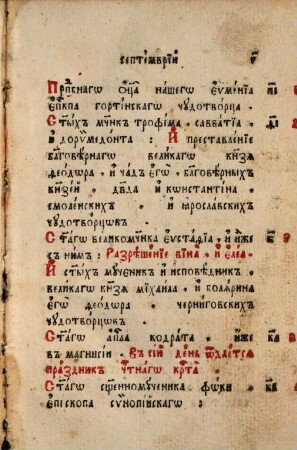 септемврїй
Прпⷣбнагѡ ѻц҃а нашегѡ еѵменїа
еп҃кпа гортѵнскагѡ чꙋдотворца.
Ст҃ыхъ мч҃никъ трофіма, савватїа
и дорѷмедонта: И преставленїе
бл҃говѣрнагѡ великагѡ кнѕѧ
ѳеѡдѡра. и чадъ егѡ. бл҃говѣрныхъ
кнѕей. дв҃да и константина
смоленскихъ. и ꙗрославскихъ
чꙋдотворцѡвъ.
Ст҃агѡ великомч҃ника еѵстаѳїа. и иже
съ нимъ: Разрѣшенїе вїна. и елеа.
И ст҃ыхъ мꙋченикъ и исповѣдникъ.
великагѡ кнѕѧ мїхаила. и болѧрина
егѡ ѳеѡдѡра. черниговскихъ
чꙋдотворцѡвъ.
Ст҃агѡ ап҃ла кодрата. иже
въ магнисїи. Въ сїй день ѿдаетсѧ
праздникъ чтⷭ҇нагѡ крⷭ҇та.
Ст҃агѡ сщ҃енномꙋченика фѡки.
епⷭ҇копа сѵнопїйскагѡ: